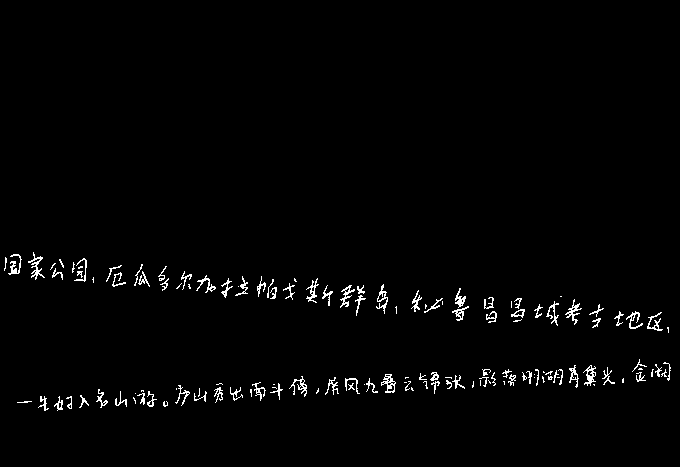 国家公园,厄瓜多尔加拉帕戈斯群岛,秘鲁昌昌城考古地区,
一生好入名山游。庐山秀出南斗傍,屏风九叠云锦张,影落明湖青黛光,金阙